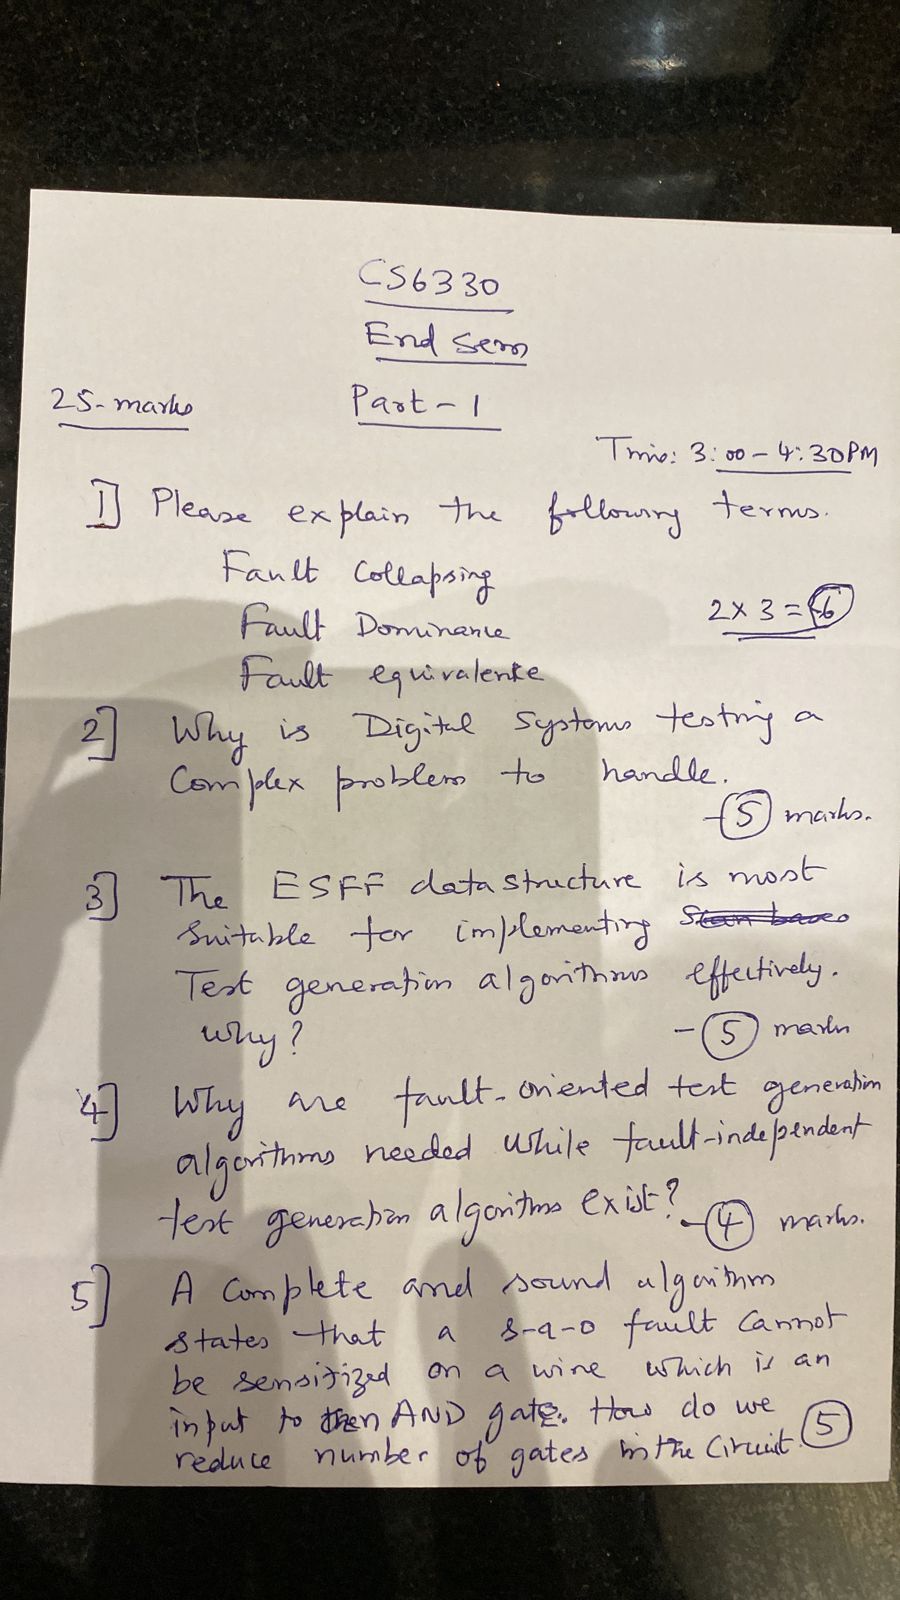 CS6330
End Sem
25-marks Part-1
Time: 3:00-4:30PM
1] Please explain the following terms.
Fault Collapsing
2 x 3 = 6
Fault Dominance
Fault equivalence
2] Why is Digital Systems testing a
Complex problem to handle.
- 5 marks.
3] The ESFF datastructure is most
suitable for implementing
Test generation algorithms effectively.
Why? - 5 marks
4] Why are fault-oriented test generation
algorithms needed while fault-independent
test generation algorithms exist?
- 4 marks.
5] A Complete and sound algorithm
states that a s-a-0 fault cannot
be sensitized on a wire which is an
input to AND gate. How do we
reduce number of gates in the Circuit. 5